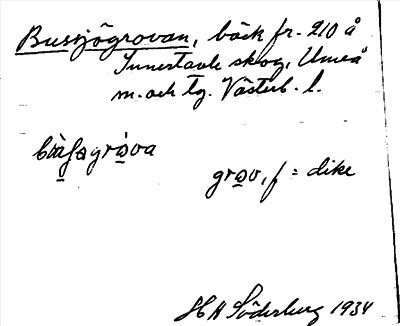 Bussjögrovan, bäck fr. 210 å
Innertavle skog, Umeå
m. och tg. Västerb. l.
grov, f = dike
H A Söderberg 1934